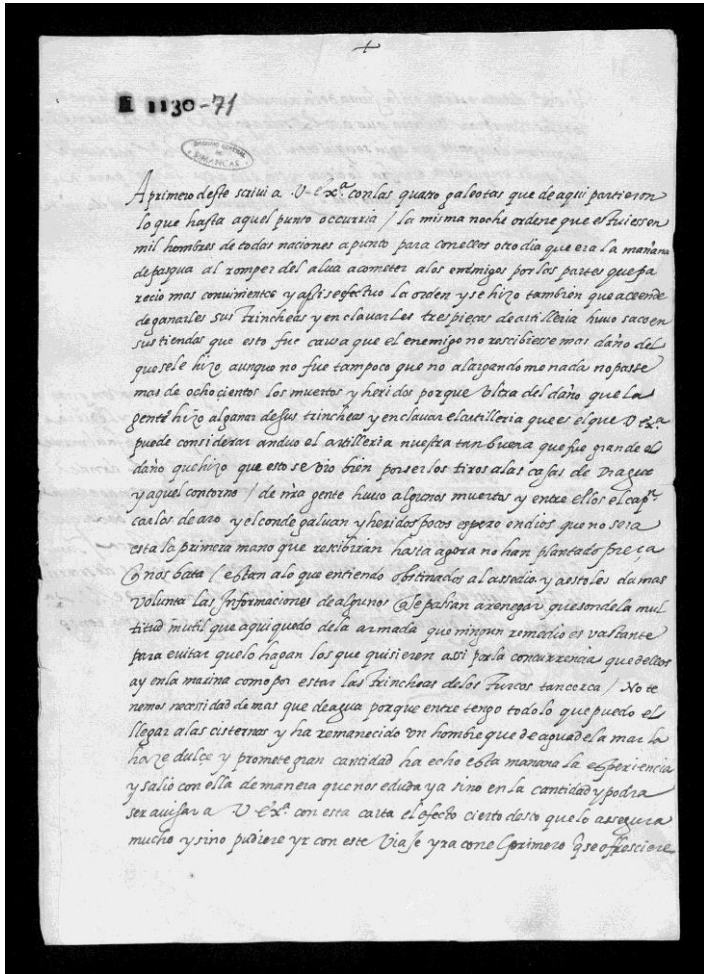 +
E 1130-71
ARCHIVO GENERAL DE SIMANCAS
A primero deste scrivi a V. Exª. con las quatro galeotas que de aqui partieron
lo que hasta aquel punto occurria / la misma noche ordene que estuiessen
mil hombres de todas naciones a punto para con ellos otro dia que era la mañana
de pasqua al romper del alua acometer a los enemigos por las partes que pa
recio mas conuiniente y assi se efectuo la orden y se hizo tambien que a cende
de ganarles sus trincheas y enclauarles tres pieças de artilleria huuo saco en
sus tiendas que esto fue causa que el enemigo no rescibiesse mas daño del
que se le hizo aunque no fue tampoco que no alargando me nada no passe
mas de ochocientos los muertos y heridos porque Ultra del daño que la
gente hizo al ganar de sus trincheas y enclauar el artilleria que es el que V Exª
puede considerar anduo el artilleria nuestra tan buena que fue grande el
daño que hizo que esto se vio bien por ser los tiros a las casas de Dragut
y aquel contorno / de nrã gente huuo algunos muertos y entre ellos el capⁿ
carlos de aro y el conde galuan y heridos pocos espero en dios que no sera
esta la primera mano que rescibiran hasta agora no han plantado pieça
q nos bata / estan a lo que entiendo obstinados al assedio y a esto les da mas
volunta las Informaciones de algunos q se passan a renegar que son de la mul
titud inutil que aqui quedo de la armada que ningun remedio es vastante
para euitar que lo hagan los que quisieren assi por la concurrencia que dellos
ay en la marina como por estar las trincheas de los Turcos tan cerca / No te
nemos necesidad de mas que de agua porque entretengo todo lo que puedo el
llegar a las cisternas y ha remanecido Un hombre que de agua de la mar la
haze dulçe y promete gran cantidad ha echo esta manana la esperiencia
y salio con ella de manera que no es duda ya sino en la cantidad y podra
ser auisar a V Exª. con esta carta el efecto cierto desto que lo assegura
mucho y sino pudiere yr con este Viaje yra con el primero q se offresciere